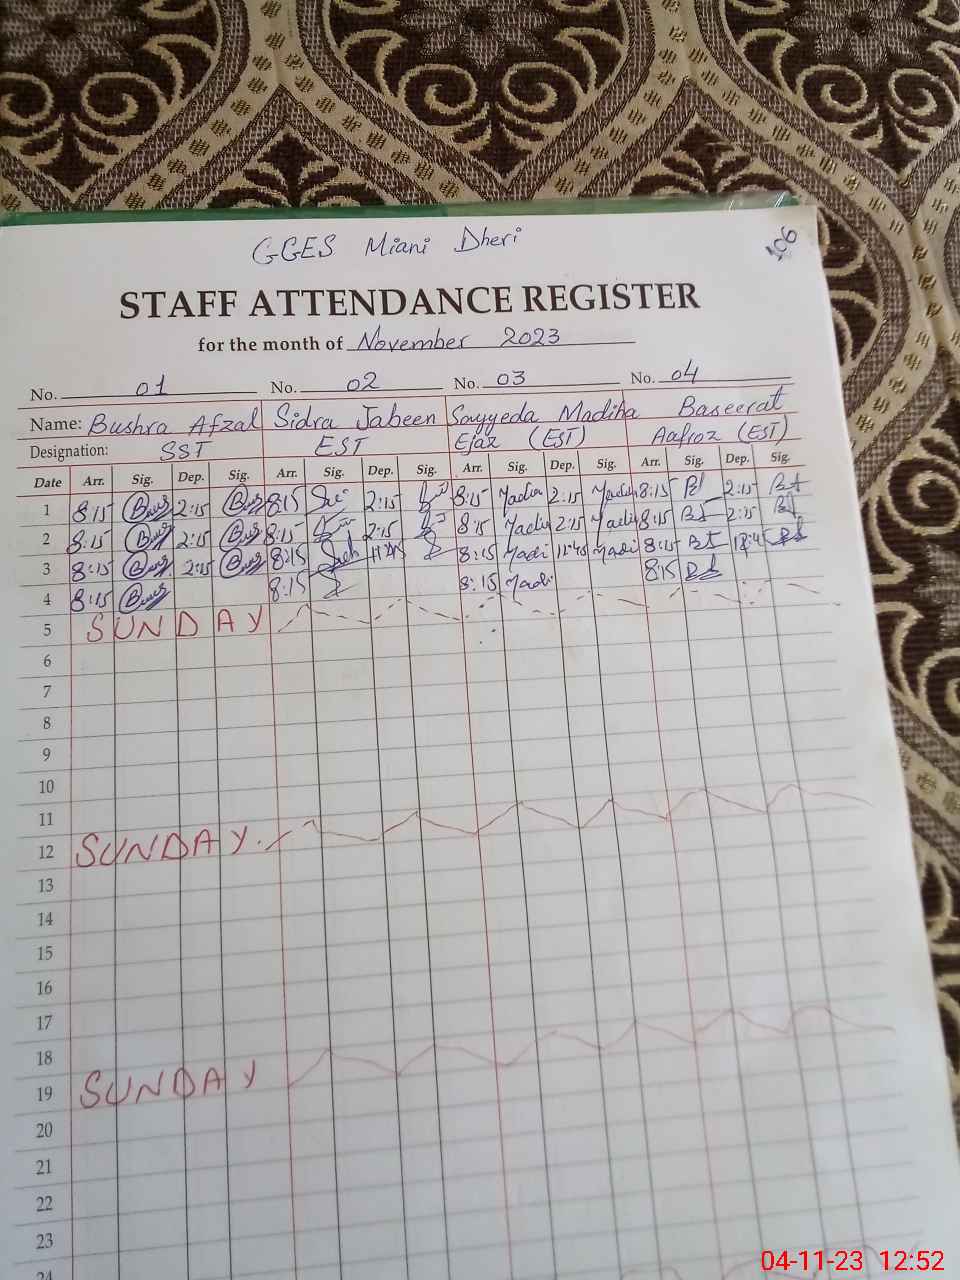 GGES Miani Dheri
106
STAFF ATTENDANCE REGISTER
for the month of November 2023
No. 01 No. 02 No. 03 No. 04
Name: Bushra Afzal Sidra Jabeen Sayyeda Madiha Baseerat
Designation: SST EST Ejaz (EST) Aafroz (EST)
Date Arr. Sig. Dep. Sig. Arr. Sig. Dep. Sig. Arr. Sig. Dep. Sig. Arr. Sig. Dep. Sig.
1 8:15 2:15 8:15 2:15 8:15 2:15 8:15 2:15
2 8:15 2:15 8:15 2:15 8:15 2:15 8:15 2:15
3 8:15 2:15 8:15 11:45 8:15 11:45 8:15
4 8:15 8:15 8:15 8:15
5 SUNDAY
6
7
8
9
10
11
12 SUNDAY.
13
14
15
16
17
18
19 SUNDAY
20
21
22
23
24
04-11-23 12:52